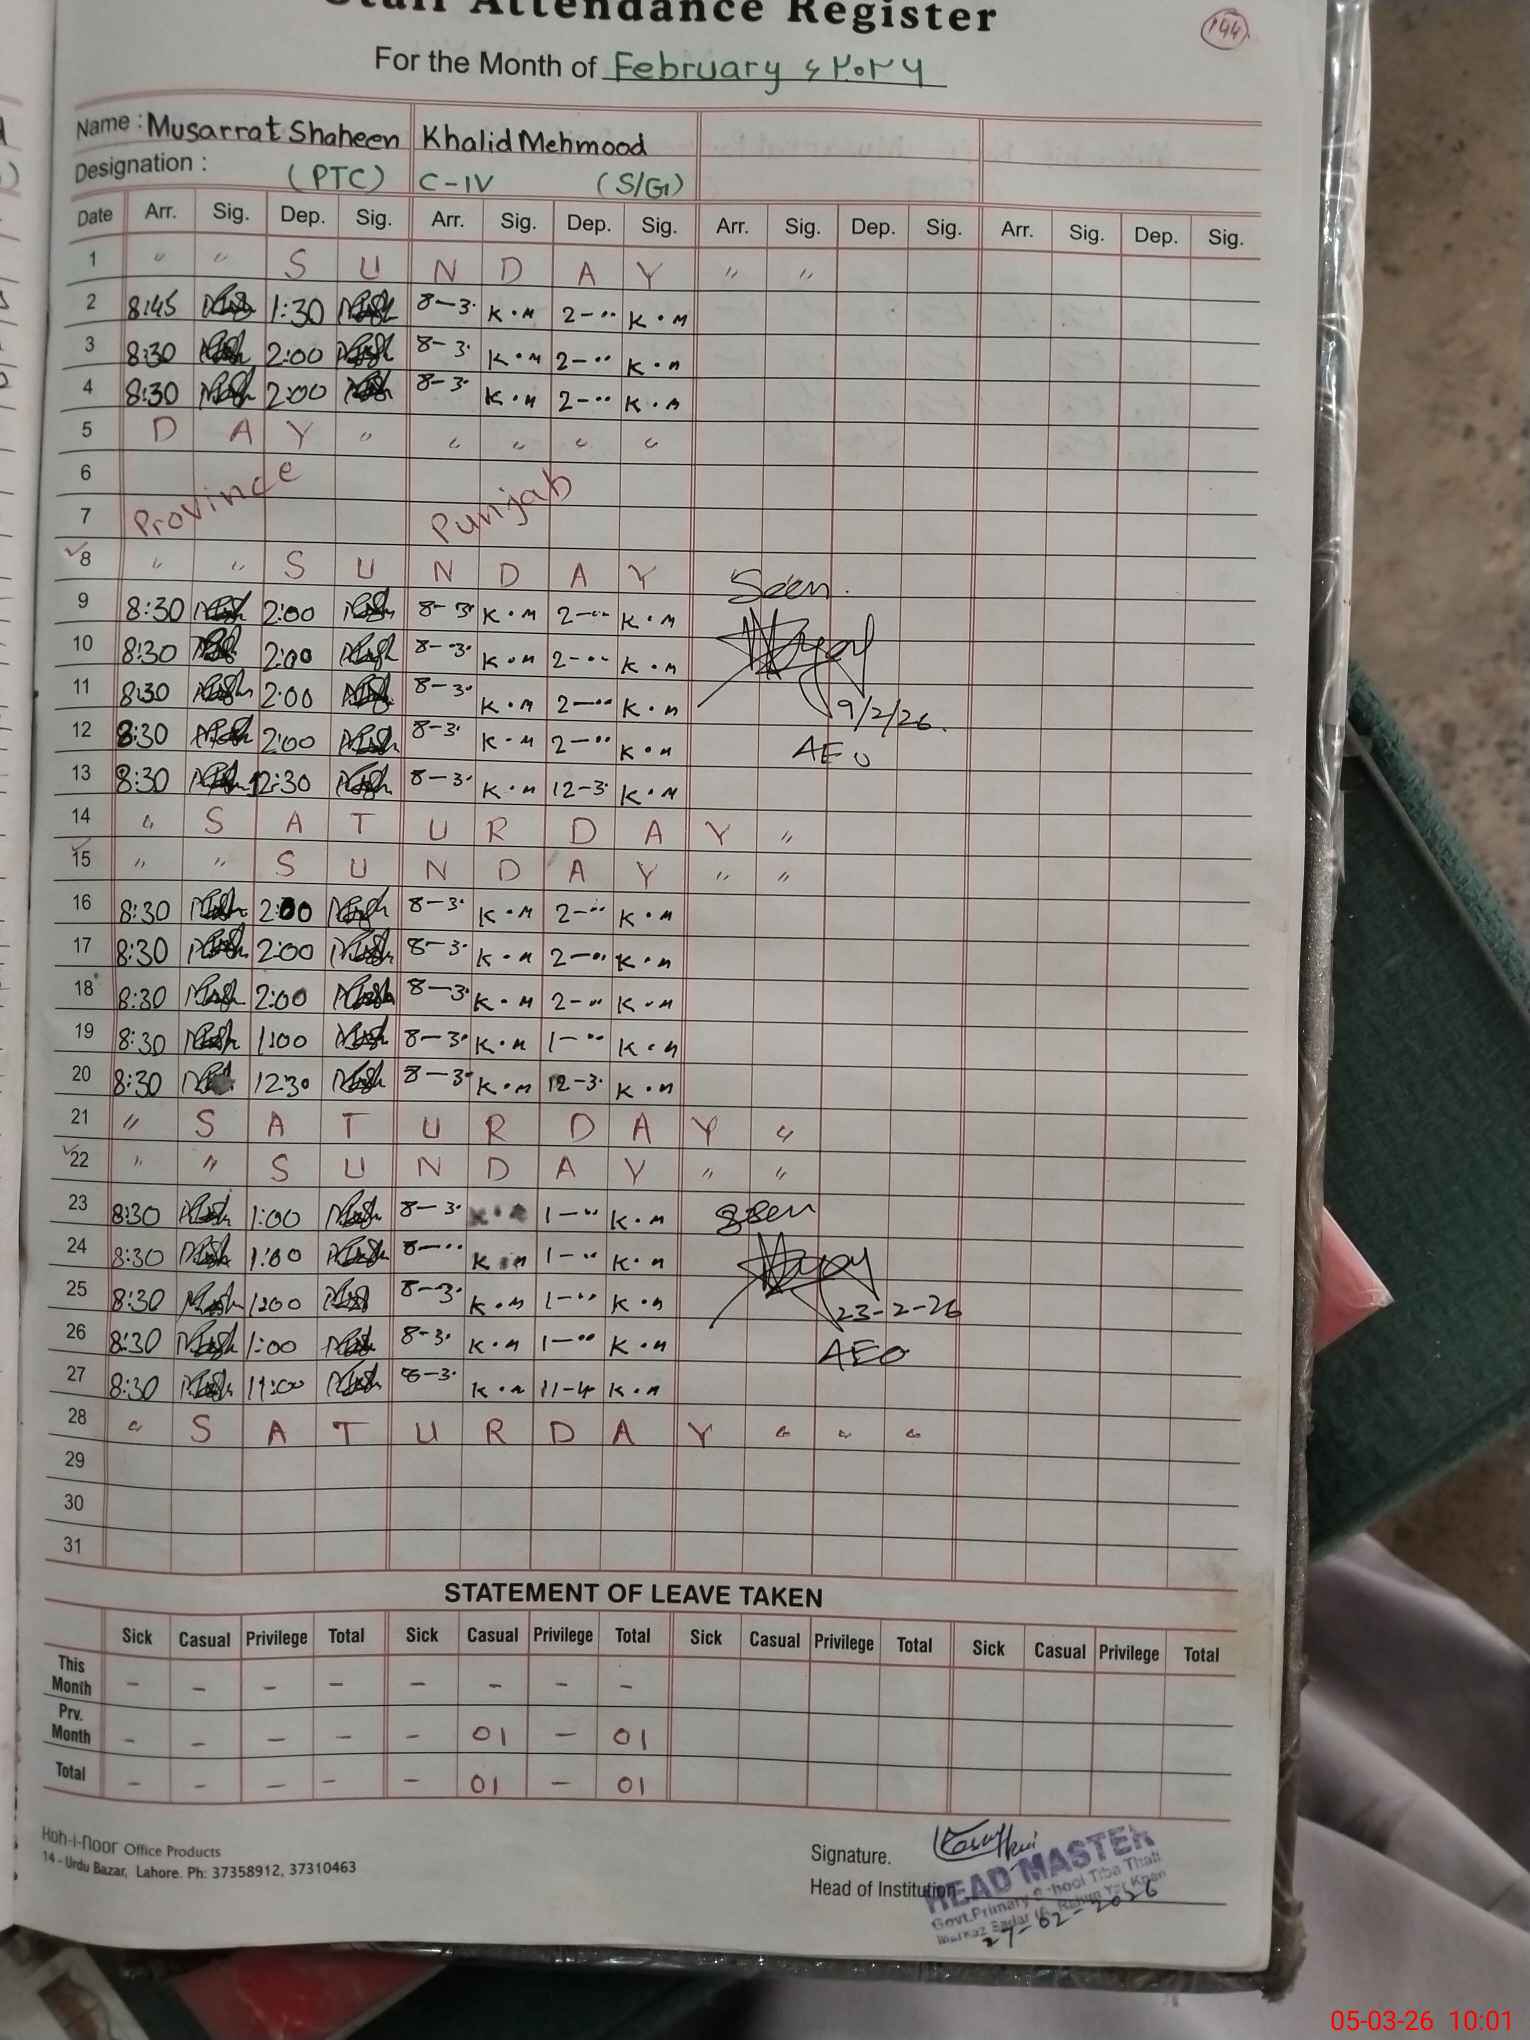 Staff Attendance Register
144
For the Month of February ء ۲۰۲۶
Name : Musarrat Shaheen Khalid Mehmood
Designation : (PTC) C-IV (S/G)
Date Arr. Sig. Dep. Sig. Arr. Sig. Dep. Sig. Arr. Sig. Dep. Sig. Arr. Sig. Dep. Sig.
1 " " S U N D A Y " "
2 8:45 1:30 8-3. K.M 2-.. K.M
3 8:30 2:00 8-3. K.M 2-.. K.M
4 8:30 2:00 8-3. K.M 2-.. K.M
5 D A Y " " " " "
6
7 Province Punjab
8 " " S U N D A Y Seen.
9 8:30 2:00 8-3. K.M 2-.. K.M
10 8:30 2:00 8-3. K.M 2-.. K.M
11 8:30 2:00 8-3. K.M 2-.. K.M 9/2/26.
12 8:30 2:00 8-3. K.M 2-.. K.M AEO
13 8:30 12:30 8-3. K.M 12-3. K.M
14 " S A T U R D A Y "
15 " " S U N D A Y " "
16 8:30 2:00 8-3. K.M 2-.. K.M
17 8:30 2:00 8-3. K.M 2-.. K.M
18 8:30 2:00 8-3. K.M 2-.. K.M
19 8:30 1:00 8-3. K.M 1-.. K.M
20 8:30 1230 8-3. K.M 12-3. K.M
21 " S A T U R D A Y "
22 " " S U N D A Y " "
23 8:30 1:00 8-3. K.M 1-.. K.M Seen
24 8:30 1:00 8-.. K.M 1-.. K.M
25 8:30 1:00 8-3. K.M 1-.. K.M 23-2-26
26 8:30 1:00 8-3. K.M 1-.. K.M AEO
27 8:30 11:00 8-3. K.M 11-4 K.M
28 " S A T U R D A Y " " "
29
30
31
STATEMENT OF LEAVE TAKEN
Sick Casual Privilege Total Sick Casual Privilege Total Sick Casual Privilege Total Sick Casual Privilege Total
This Month - - - - - - - -
Prv. Month - - - - - 01 - 01
Total - - - - - 01 - 01
Koh-i-noor Office Products
14 - Urdu Bazar, Lahore. Ph: 37358912, 37310463
Signature.
Head of Institution
HEAD MASTER
Govt. Primary School Tiba Thall
Markaz Sadar Rahim Yar Khan
27-02-2026
05-03-26 10:01